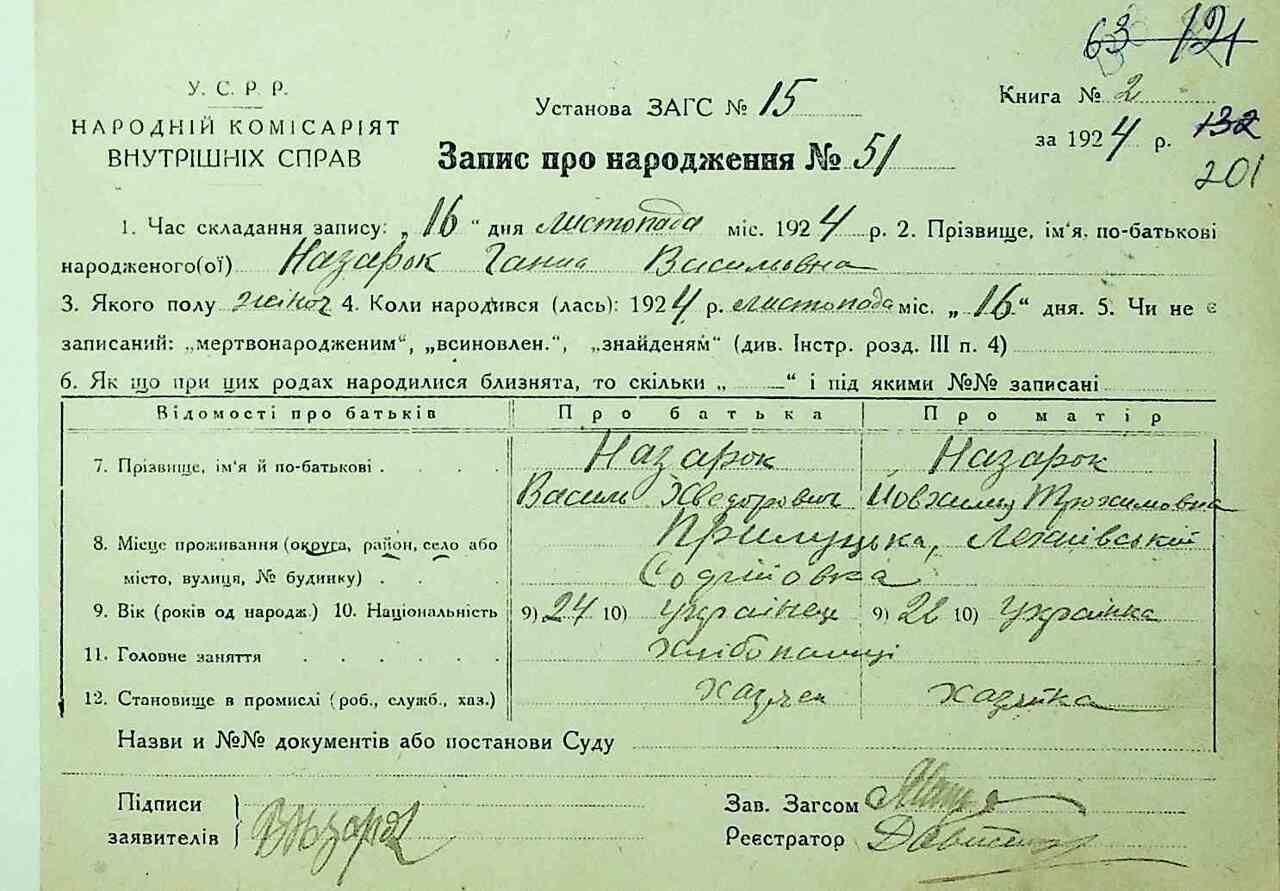 63 121
У. С. Р. Р.
НАРОДНІЙ КОМІСАРІЯТ
ВНУТРІШНІХ СПРАВ
Установа ЗАГС № 15
Запис про народження № 51
Книга № 2
за 1924 р. 132
201
1. Час складання запису: „16" дня листопада міс. 1924 р. 2. Прізвище, ім'я, по-батькові
народженого(ої) Назарок Ганна Васильовна
3. Якого полу жіноч 4. Коли народився (лась): 1924 р. листопада міс. „16" дня. 5. Чи не є
записаний: „мертвонародженим", „всиновлен.", „знайденям" (див. Інстр. розд. III п. 4)
6. Як що при цих родах народилися близнята, то скільки „ — " і під якими №№ записані
Відомості про батьків Про батька Про матір
7. Прізвище, ім'я й по-батькові . . . . Назарок Назарок
Василь Хведорович Трохимовна
8. Місце проживання (округа, район, село або Прилуцька,
місто, вулиця, № будинку) . . . .
9. Вік (років од народж.) 10. Національність 9) 24 10) українец 9) 22 10) українка
11. Головне заняття . . . . . .
12. Становище в промислі (роб., служб., хаз.) хазяїн хазяйка
Назви и №№ документів або постанови Суду
Підписи
заявителів
Зав. Загсом
Реєстратор